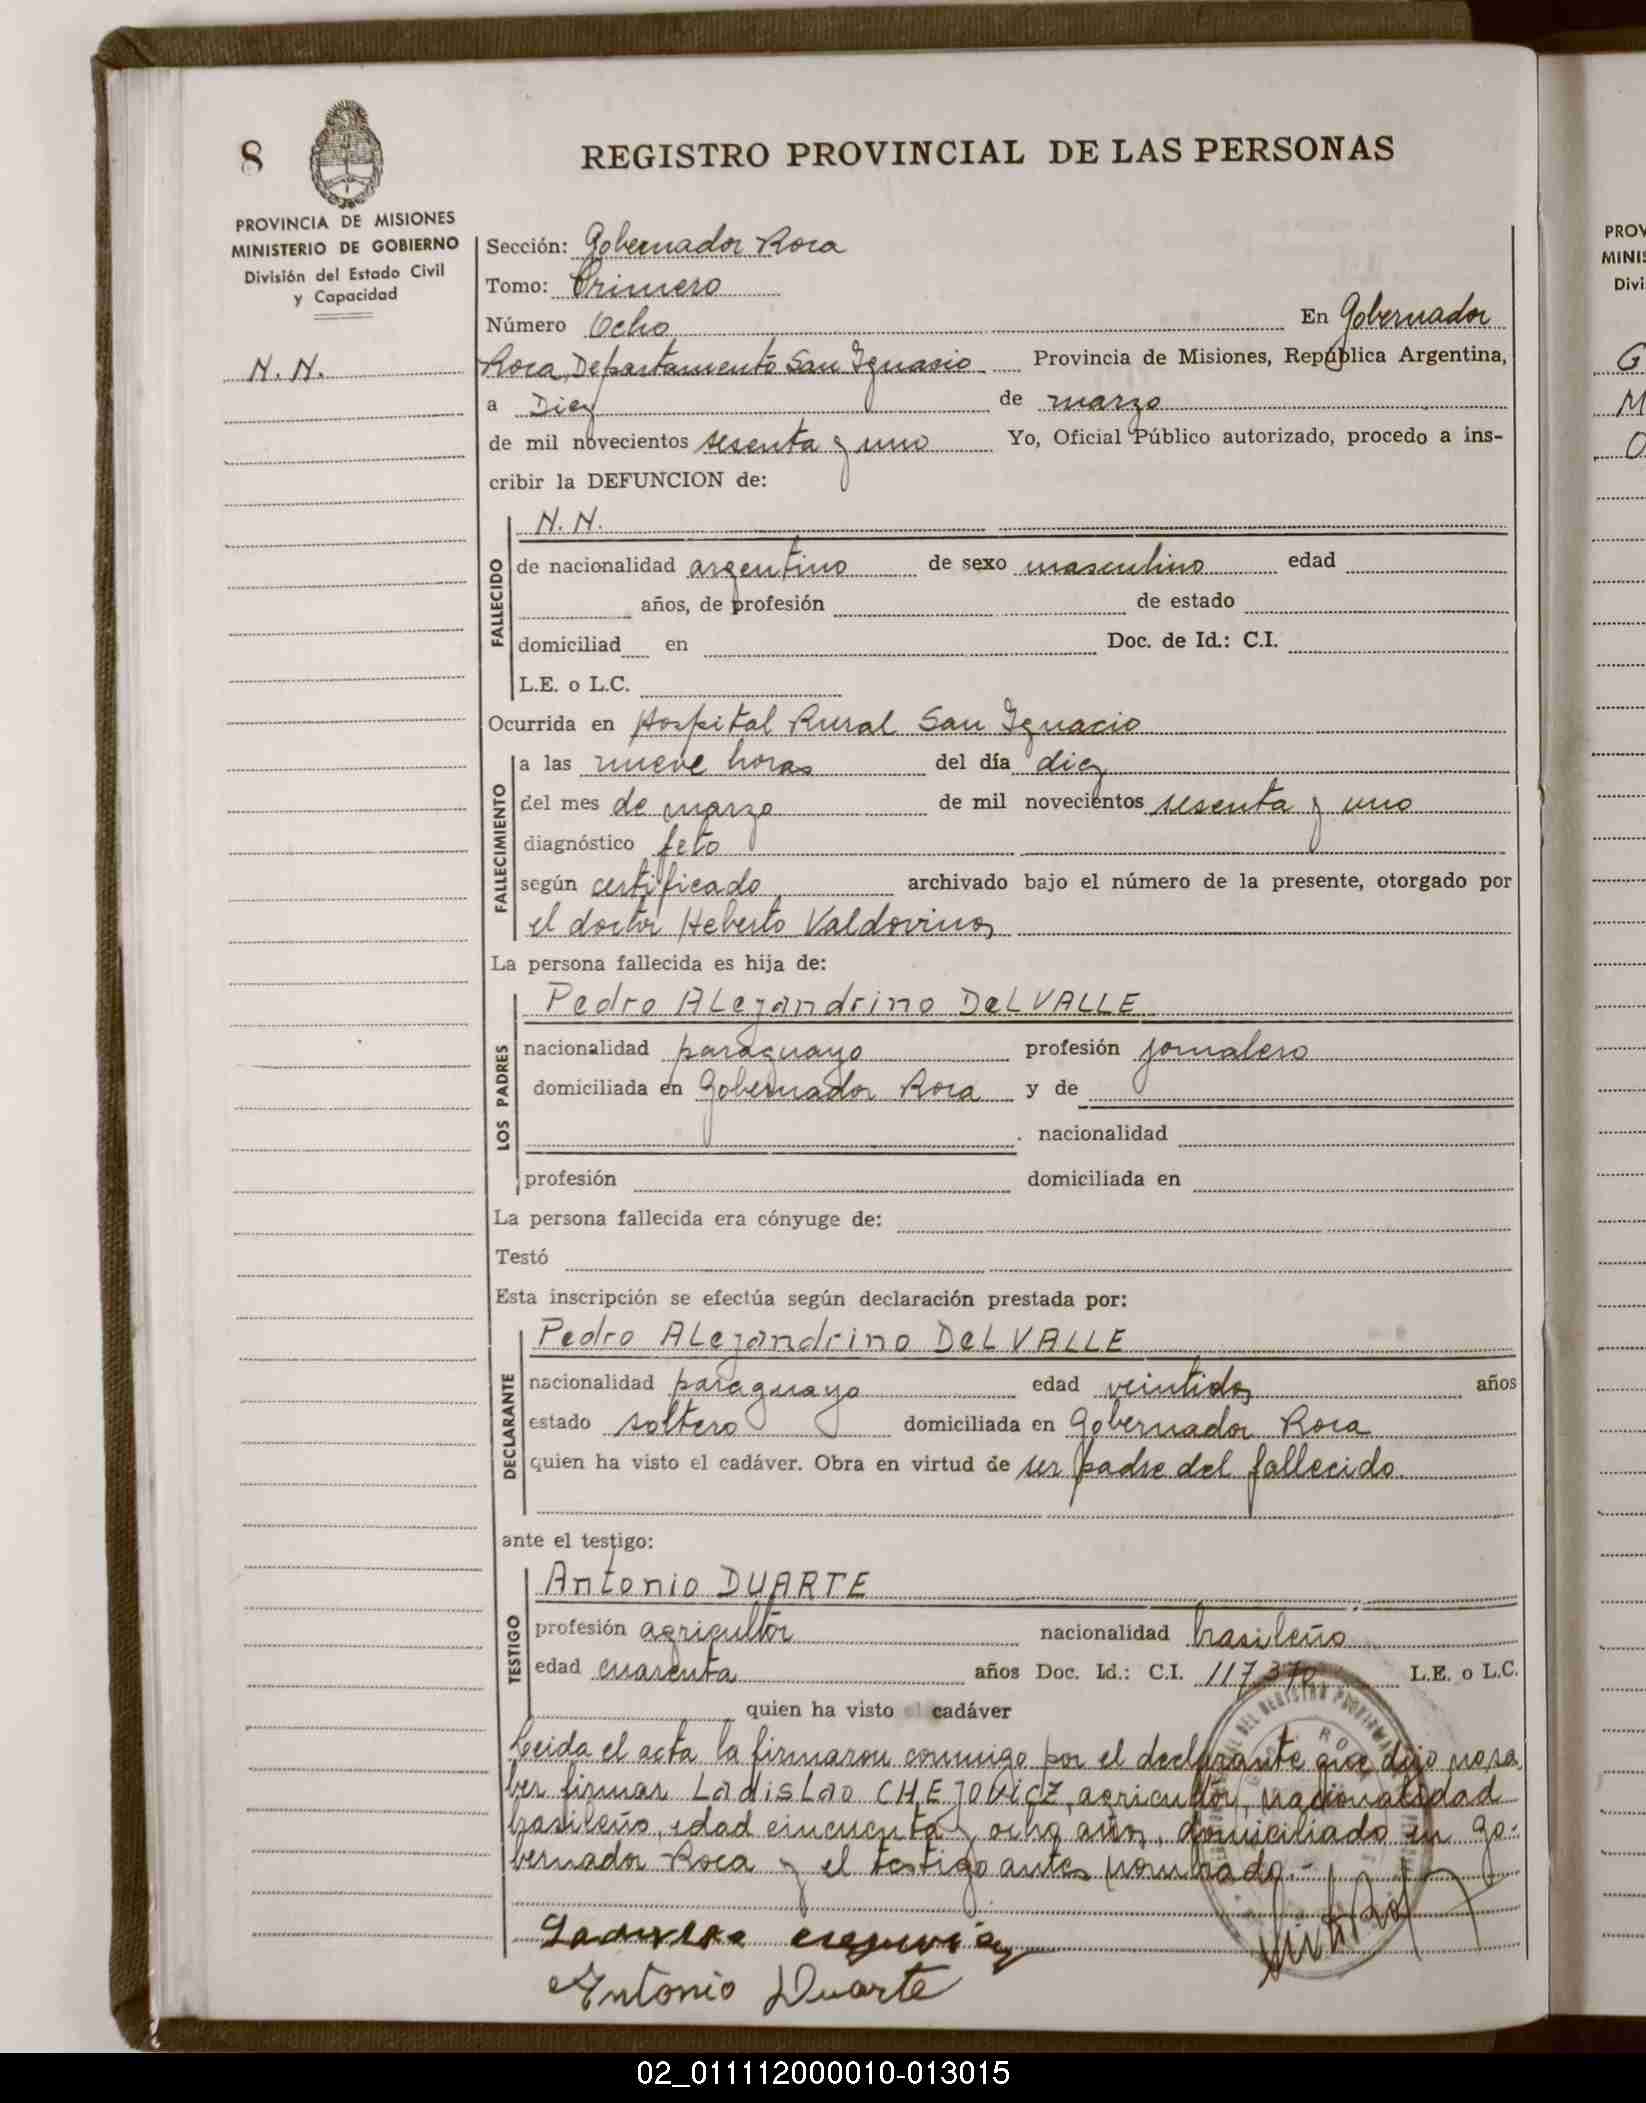 8
REGISTRO PROVINCIAL DE LAS PERSONAS
PROVINCIA DE MISIONES
MINISTERIO DE GOBIERNO
División del Estado Civil
y Capacidad
N. N.
Sección: Gobernador Roca
Tomo: Primero
Número Ocho En Gobernador
Roca, Departamento San Ignacio Provincia de Misiones, República Argentina,
a Diez de marzo
de mil novecientos sesenta y uno Yo, Oficial Público autorizado, procedo a ins-
cribir la DEFUNCION de:
FALLECIDO
N. N.
de nacionalidad argentino de sexo masculino edad
años, de profesión de estado
domiciliad en Doc. de Id.: C.I.
L.E. o L.C.
Ocurrida en Hospital Rural San Ignacio
FALLECIMIENTO
a las nueve horas del día diez
del mes de marzo de mil novecientos sesenta y uno
diagnóstico feto
según certificado archivado bajo el número de la presente, otorgado por
el doctor Heberto Valdovinos
La persona fallecida es hija de:
LOS PADRES
Pedro ALejandrino DeLVALLE
nacionalidad paraguayo profesión jornalero
domiciliada en Gobernador Roca y de
nacionalidad
profesión domiciliada en
La persona fallecida era cónyuge de:
Testó
Esta inscripción se efectúa según declaración prestada por:
DECLARANTE
Pedro ALejandrino DeLVALLE
nacionalidad paraguayo edad veintidos años
estado soltero domiciliada en Gobernador Roca
quien ha visto el cadáver. Obra en virtud de ser padre del fallecido.
ante el testigo:
TESTIGO
Antonio DUARTE
profesión agricultor nacionalidad brasileño
edad cuarenta años Doc. Id.: C.I. 117.370 L.E. o L.C.
quien ha visto el cadáver
Leida el acta la firmaron conmigo por el declarante que dijo no sa
ber firmar LadisLao CHEJOVICZ, agricultor, nacionalidad
brasileño, edad cincuenta y ocho años, domiciliado en Go-
bernador Roca y el testigo antes nombrado.-
Antonio Duarte
PROV
MINIS
Divi
G
M
O
02_011112000010-013015